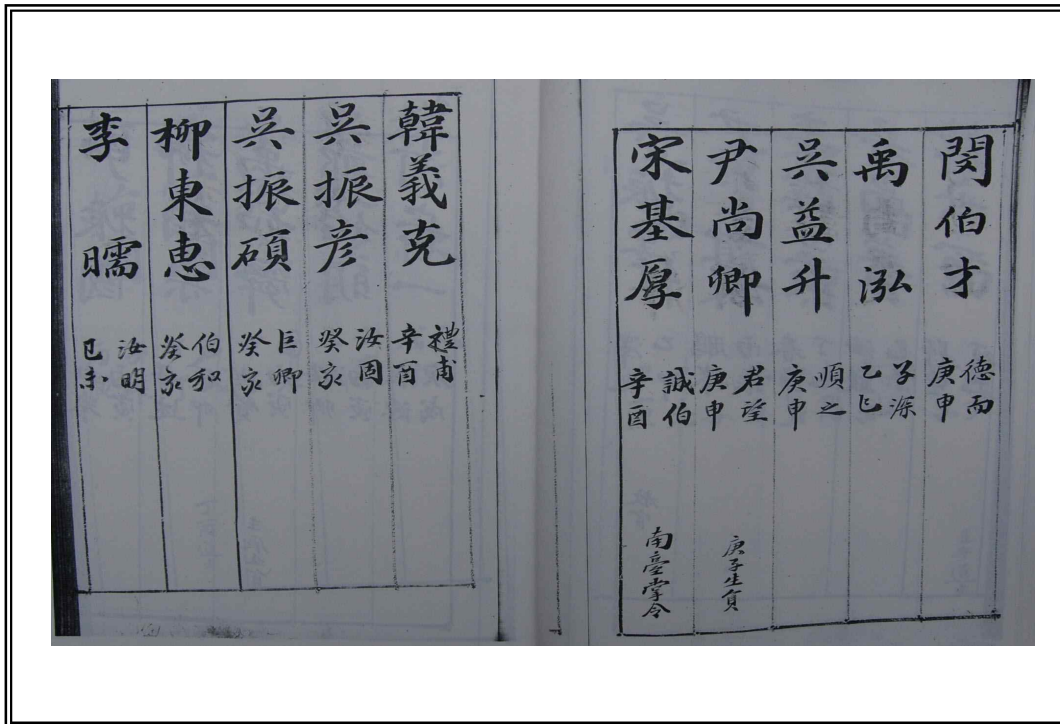 閔伯才
德而
庚申
禹泓
子深
乙巳
吳益升
順之
庚申
尹尙卿
君望
庚申
庚子生員
宋基厚
誠伯
辛酉
南臺掌令
韓義克
禮甫
辛酉
吳振彦
汝固
癸亥
吳振碩
巨卿
癸亥
柳東惠
伯和
癸亥
李曘
汝明
己未